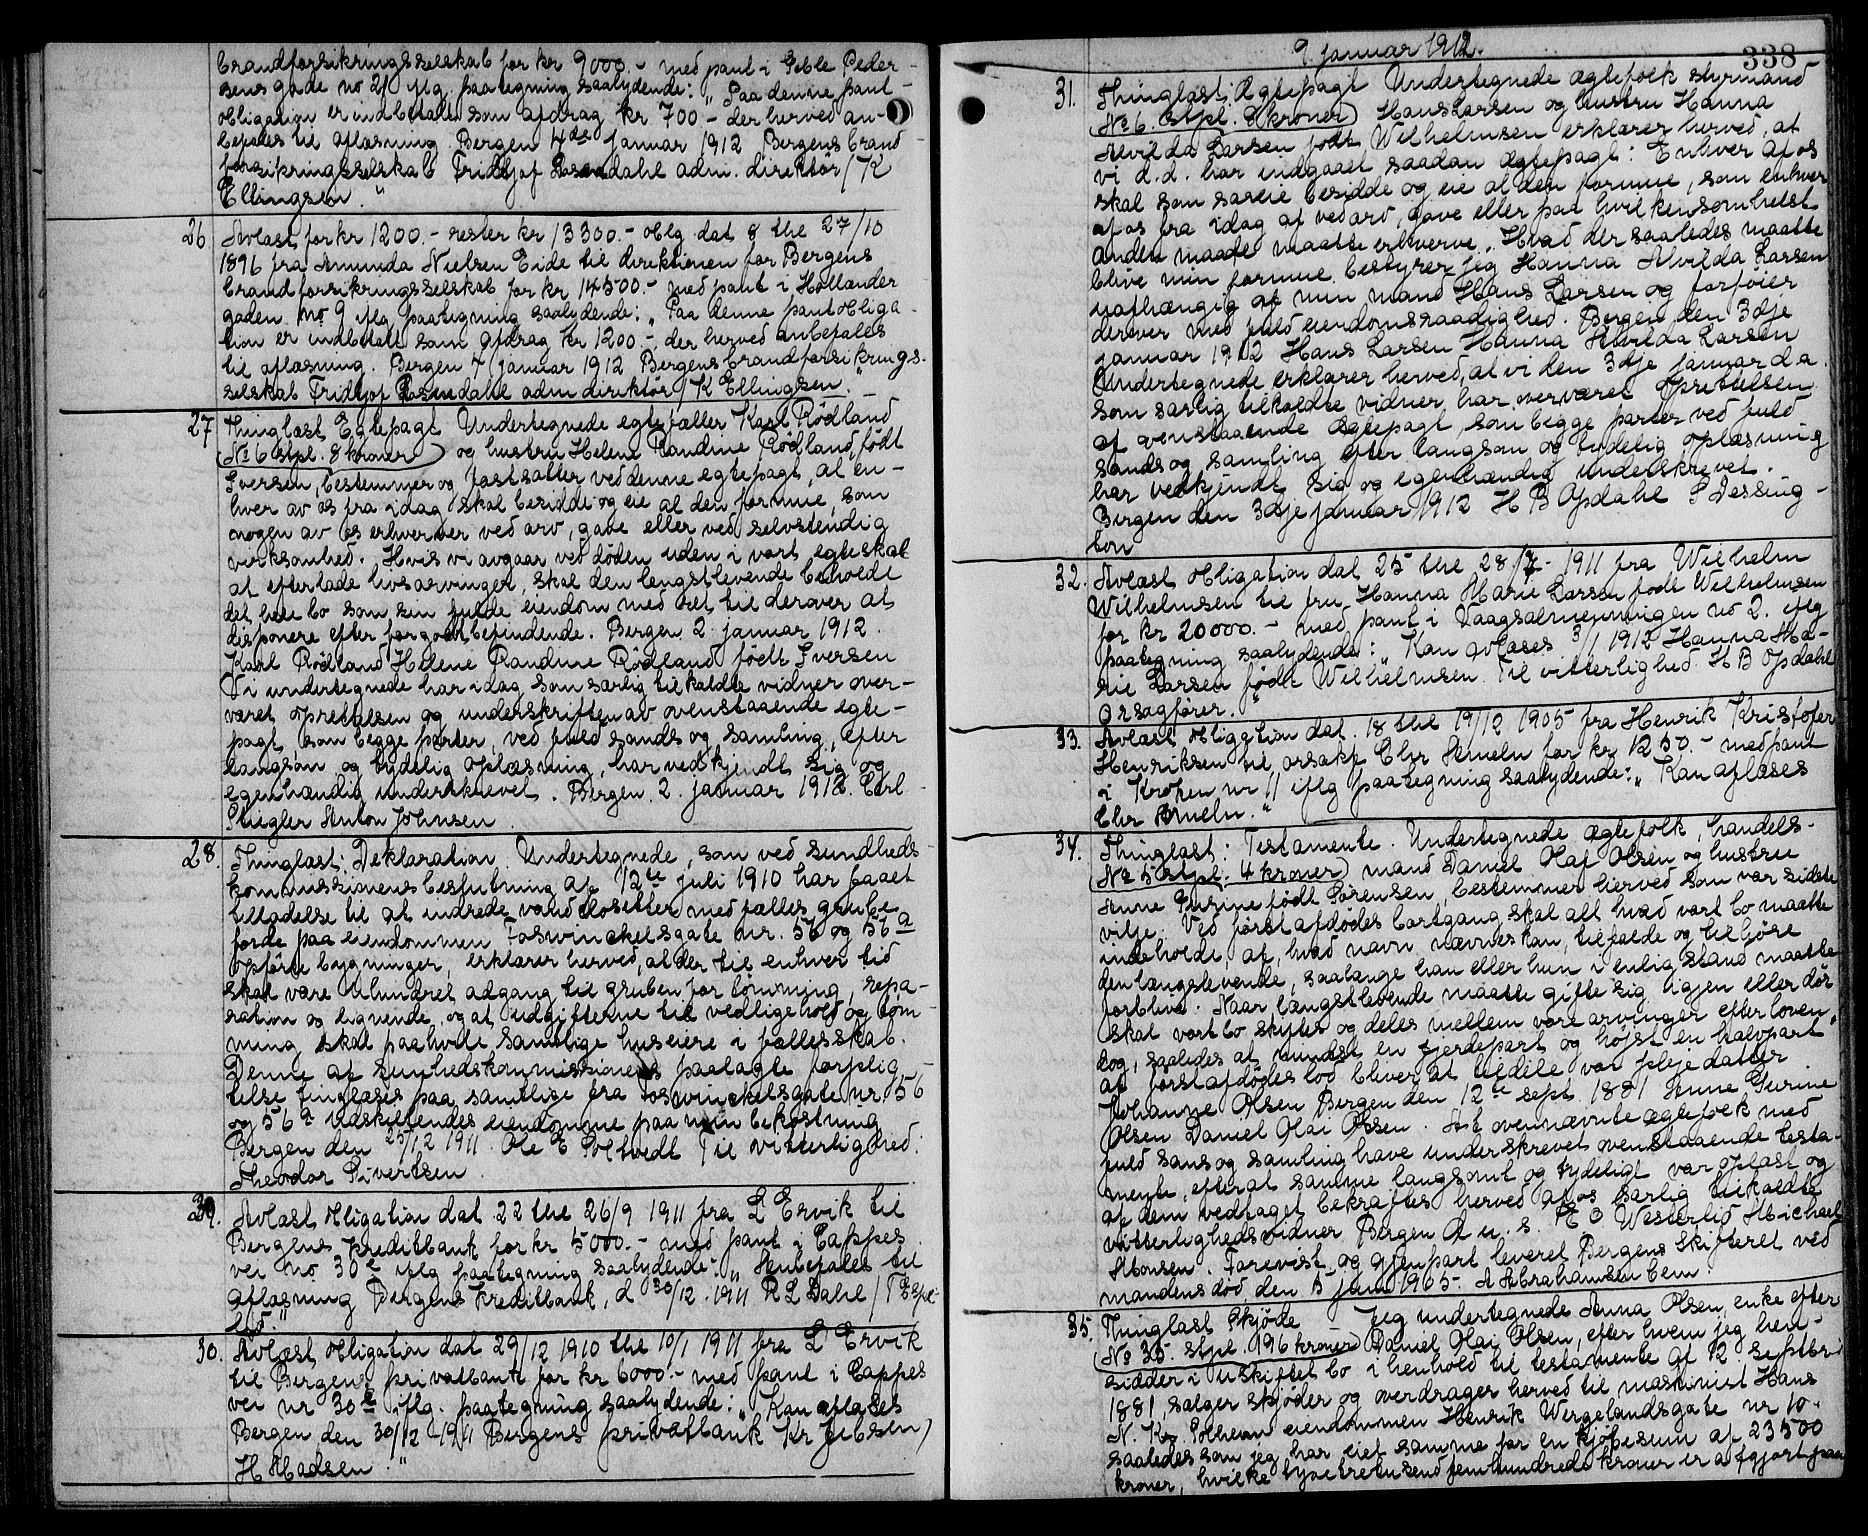 brandforsikringsselskab for kr 9000 - med pant i Geble Peder-
sens gade no 2f iflg. paategning saalydende: "Paa denne pant-
obligation er indbetalt som afdrag kr 700 - der herved an-
befales til aflæsning. Bergen 4de Januar 1912 Bergens brand
forsikringsselskab Fridtjof Rosendahl adm. direktör / K
Ellingsen."
26 Avlæst for kr 1200.- rester kr 13300.- oblg dat 8 thl 27/10
1896 fra Amunda Nielsen Eide til direktionen for Bergens
brandforsikringsselskab for kr 14500.- med pant i Hollander
gaden no 9 iflg paategning saalydende: "Paa denne pantobliga-
tion er indbetalt som afdrag kr 1200.- der herved anbefales
til aflæsning. Bergen 7 januar 1912 Bergens brandforsikrings-
selskab Fridtjof Rosendahl adm direktör / K Ellingsen."
27 Thinglæst Egtepagt Undertegnede egtefæller Karl Rödland
(No 6 stpl. 8 kroner) og hustru Helene Randine Rödland, født
Iversen, bestemmer og fastsætter ved denne egtepagt, at en-
hver av os fra idag skal besidde og eie al den formue, som
nogen av os erhverver ved arv, gave eller ved selvstendig
virksomhed. Hvis vi avgaar ved døden uden i vart egteskab
at efterlade livsarvinger, skal den lengstlevende beholde
det hele bo som sin fulde eiendom med ret til derover at
disponere efter forgodtbefindende. Bergen 2 januar 1912.
Karl Rödland Helene Randine Rödland født Iversen
Vi undertegnede har idag som særlig tilkaldte vidner over-
været oprettelsen og underskriften av ovenstaaende egte-
pagt, som begge parter, ved fuld sands og samling, efter
langsom og tydelig oplæsning, har vedkjendt sig og
egenhændig underskrevet. Bergen 2. januar 1912. Carl
Stiegler Anton Johnsen
28. Thinglæst: Deklaration. Undertegnede, som ved sundheds-
kommissionens beslutning af 12te juli 1910 har faaet
tilladelse til at indrede vandclosetter med fælles grube
for de paa eiendommen Foswinckelsgate nr. 56 og 56a
opførte bygninger, erklærer herved, at der til enhver tid
skal være uhindret adgang til gruben for tømming, repa-
ration og lignende, og at udgifterne til vedligehold og tøm-
ming skal paahvile samtlige huseiere i fællesskab.
Denne af sundhedskommissionens paalagte forplig-
telse tinglæses paa samtlige fra Foswinckelsgate nr. 56
og 56a udskillendes eiendomme paa min bekostning
Bergen den 23/12 1911. Ole E Til vitterlighed:
Theodor Sivertsen
29. Avlæst obligation dat 22 thl 26/9 1911 fra L Ervik til
Bergens Kreditbank for kr 5000.- med pant i Cappes
vei no 30e iflg paategning saalydende: "Anbefales til
aflæsning Bergens Kreditbank, d 30/12. 1911 R L Dahl /
30. Avlæst obligation dat 29/12 1910 thl 10/1 1911 fra L Ervik
til Bergens privatbank for kr 6000.- med pant i Cappes
vei nr 30e iflg. paategning saalydende: "Kan aflæses
Bergen den 30/12 1911 Bergens privatbank Kr Jebsen /
H Madsen."
9 januar 1912.
338
31. Thinglæst: Ægtepagt Undertegnede ægtefolk styrmand
(No 6. stpl. 8 kroner) Hans Larsen og hustru Hanna
Alvilda Larsen født Wilhelmsen erklærer herved, at
vi d.d. har indgaaet saadan ægtepagt: Enhver af os
skal som særeie besidde og eie al den formue, som enhver
af os fra idag af ved arv, gave eller paa hvilkensomhelst
anden maade maatte erhverve. Hvad der saaledes maatte
blive min formue bestyrer jeg Hanna Alvilda Larsen
uafhængig af min mand Hans Larsen og forføier
derover med fuld eiendomsraadighed. Bergen den 3dje
januar 1912 Hans Larsen Hanna Alvilda Larsen
Undertegnede erklærer herved, at vi den 3dje januar d a.
som særlig tilkaldte vidner har overværet oprettelsen
af ovenstaaende ægtepagt, som begge parter ved fuld
sands og samling efter langsom og tydelig oplæsning
har vedkjendt sig og egenhændig underskrevet.
Bergen den 3dje januar 1912 H B Opdahl P Dessing-
ton
32. Avlæst obligation dat 25 thl 28/7- 1911 fra Wilhelm
Wilhelmsen til fru Hanna Marie Larsen født Wilhelmsen
for kr 20000.- med pant i Vaagsalmenningen no 2. iflg
paategning saalydende: "Kan avlæses 3/1 1912 Hanna Ma-
rie Larsen født Wilhelmsen. Til vitterlighed. H B Opdahl
Orsagfører."
33. Avlæst obligation dat. 18 thl 19/12 1905 fra Henrik Kristofer
Henriksen til orsakf Chr for kr 1250.- med pant
i Kroken nr 11 iflg paategning saalydende: "Kan aflæses
Chr
34. Thinglæst: Testamente. Undertegnede ægtefolk, handels-
(No 5 stpl. 4 kroner) mand Daniel Olai Olsen og hustru
Anne Gurine født Sørensen, bestemmer herved som vor sidste
vilje. Ved førstafdødes bortgang skal alt hvad vort bo maatte
indeholde, af, hvad navn nævnes kan, tilfalde og tilhjøre
den længslevende, saalænge han eller hun i enlig stand maatte
forblive. Naar længstlevende maatte gifte sig igjen eller dør
skal vort bo skiftes og deles mellem vore arvinger efter loven,
dog, saaledes at mindst en fjerdepart og højst en halvpart
af førstafdødes lod bliver at uddele vor plejedatter
Johanne Olsen Bergen den 12te sept. 1881 Anne Gurine
Olsen Daniel Olai Olsen. At ovennævnte ægtefolk med
fuld sans og samling have underskrevet ovenstaaende testa-
mente, efterat samme langsomt og tydeligt var oplæst og
af dem vedtaget bekræftes herved af os særlig tilkaldte
vitterlighedsvidner Bergen d u. s. E O Westerlid Michael
Monsen. Forevist og gjenpart leveret Bergens Skifteret ved
mandens død den 5 juni 1905. A Abrahamsen bem.
35. Thinglæst Skjøde Jeg undertegnede Anna Olsen, enke efter
(No 35. stpl. 196 kroner) Daniel Olai Olsen, efter hvem jeg hen-
sidder i uskiftet bo i henhold til testamente af 12. septbr.
1881, sælger skjøder og overdrager herved til maskinist Hans
N. Kr. Polhean eiendommen Henrik Wergelandsgate nr 10.
saaledes som jeg har eiet samme for en kjøbesum af 23500
kroner, hvilke tyvetretusend femhundrede kroner er afgjort paa